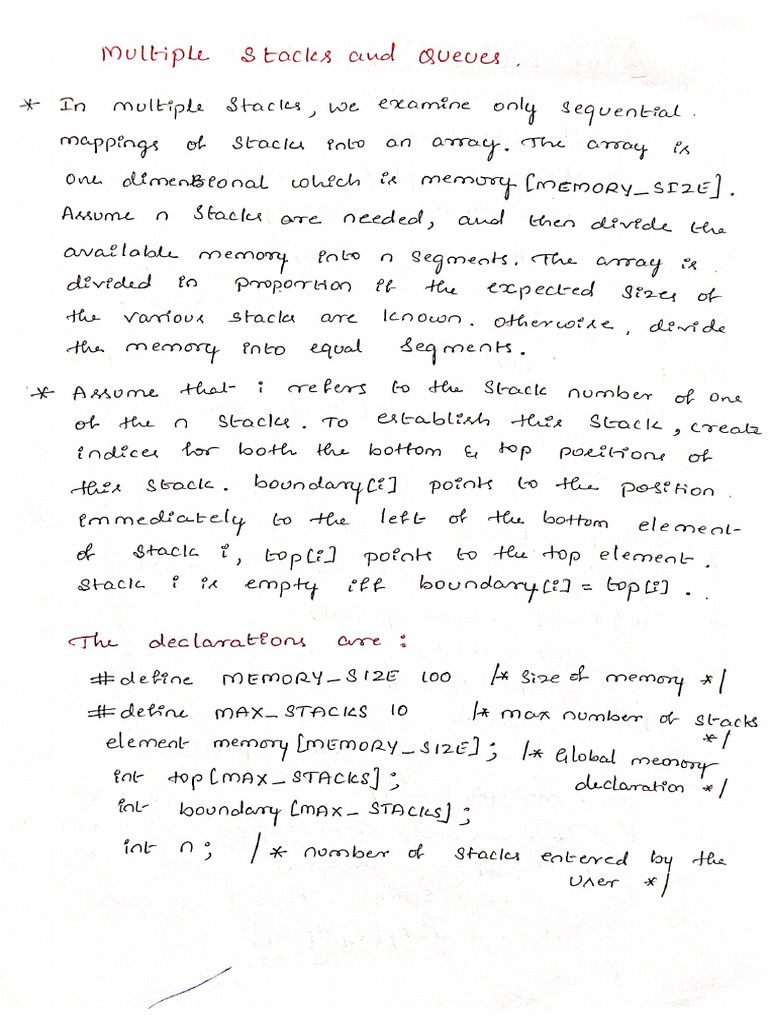 Multiple Stacks and Queues.
* In multiple Stacks, we examine only sequential.
mappings of stacks into an array. The array is
one dimensional which is memory [MEMORY_SIZE].
Assume n stacks are needed, and then divide the
available memory into n segments. The array is
divided in proportion if the expected sizes of
the various stacks are known. Otherwise, divide
the memory into equal segments.
* Assume that i refers to the stack number of one
of the n stacks. To establish this stack, create
indices for both the bottom & top positions of
this stack. boundary[i] points to the position
immediately to the left of the bottom element
of stack i, top[i] points to the top element.
Stack i is empty iff boundary[i] = top[i].
The declarations are:
#define MEMORY_SIZE 100 /* size of memory */
#define MAX_STACKS 10 /* max number of stacks
*/
element memory [MEMORY_SIZE]; /* Global memory
declaration */
int top[MAX_STACKS];
int boundary [MAX_STACKS];
int n; /* number of stacks entered by the
user */